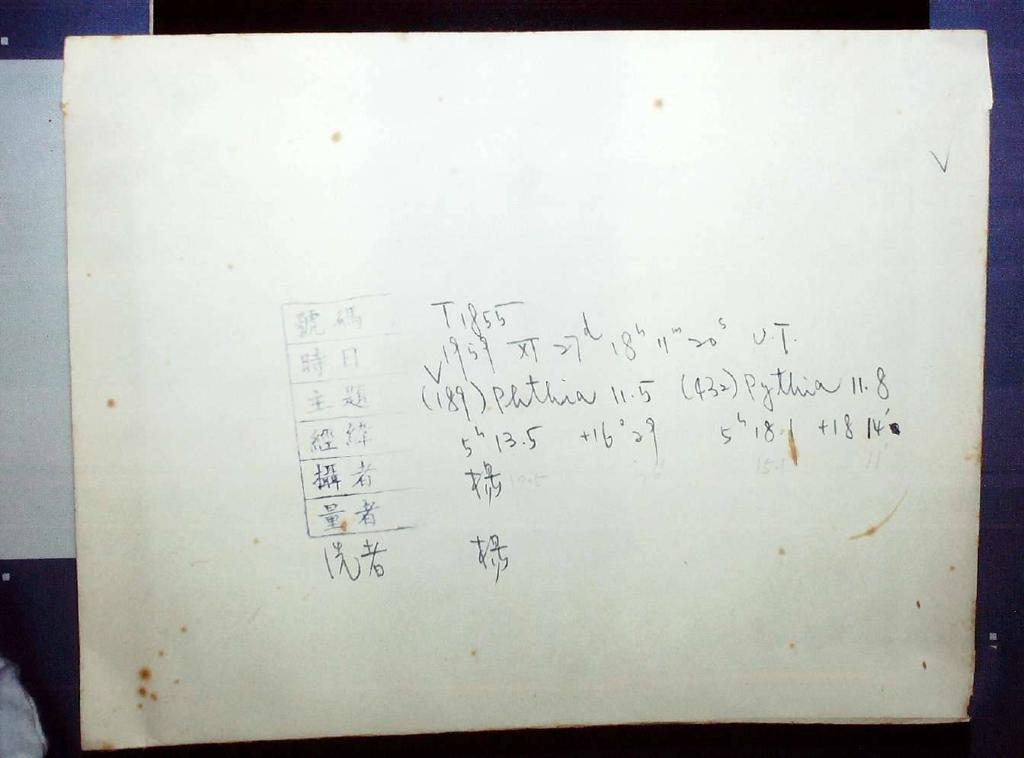 號碼 T1855
時日 1959 XI 27d 18h 11m 20s U.T.
主題 (189) Phthia 11.5 (432) Pythia 11.8
經緯 5h 13.5 +16° 29 5h 18.1 +18 14'
攝者 楊
量者
洗者 楊